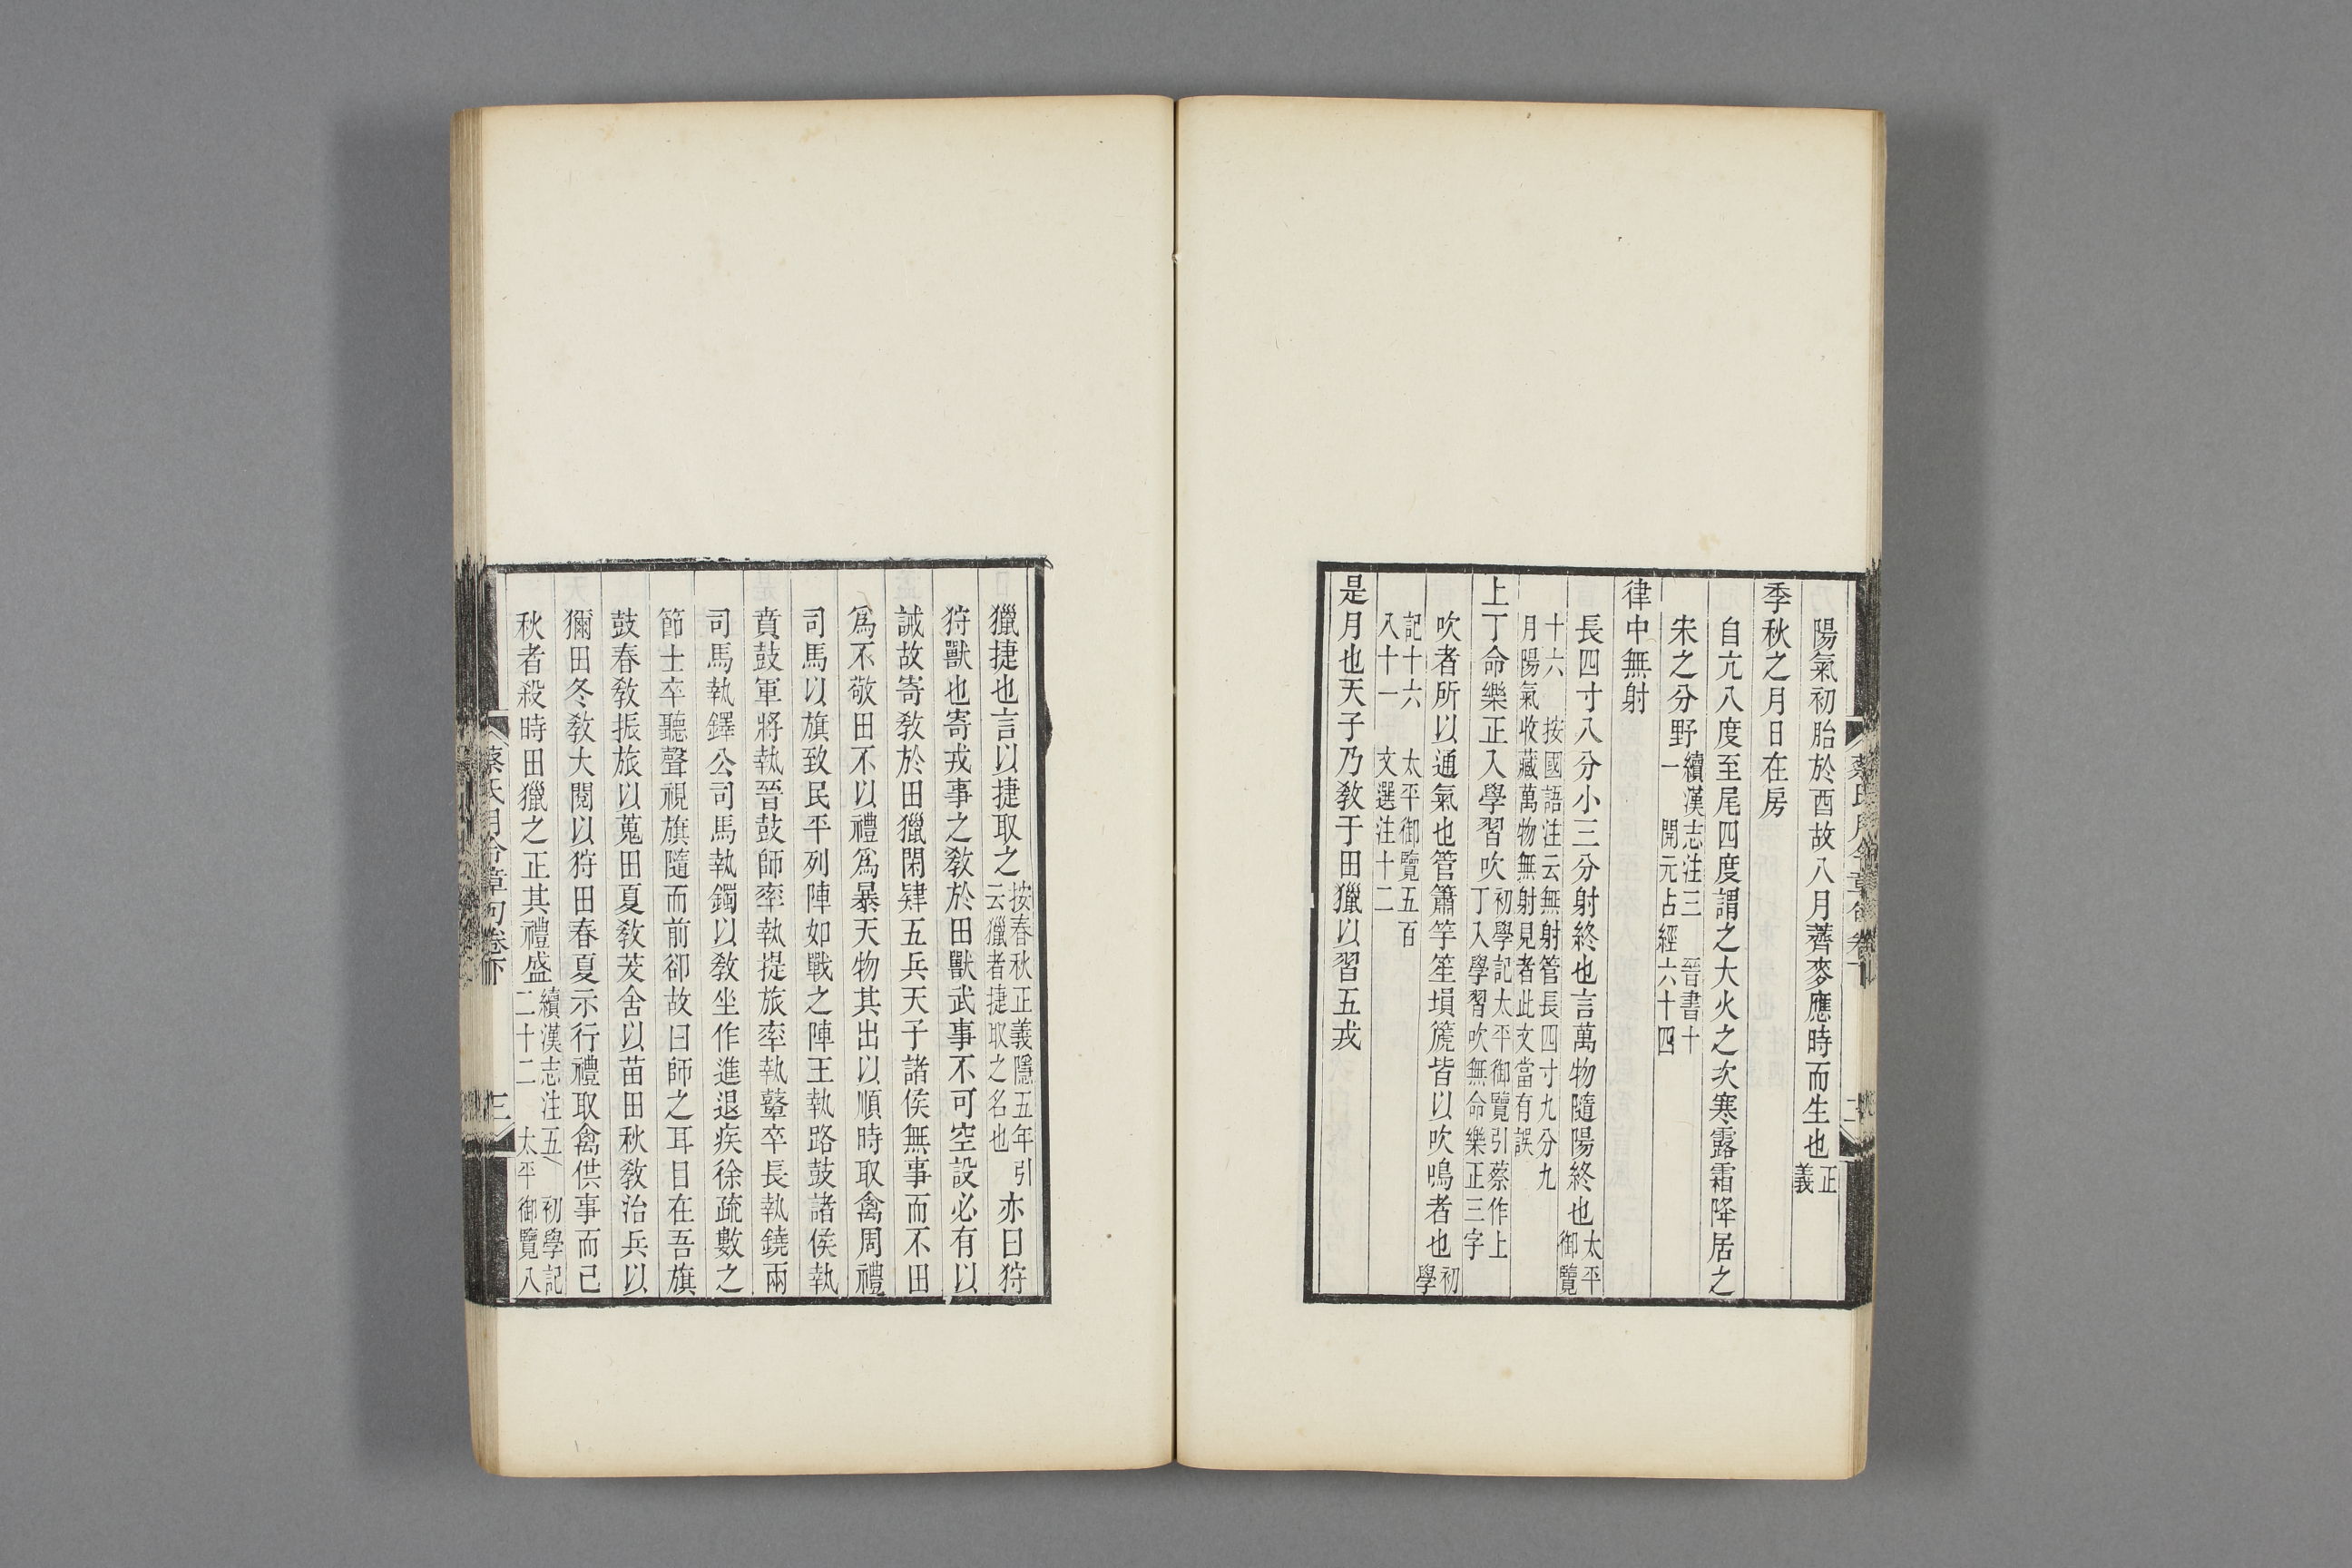 陽氣初胎於酉故八月薺麥應時而生也正義
季秋之月日在房
自亢八度至尾四度謂之大火之次寒露霜降居之
宋之分野續漢志注三　晉書十一　開元占經六十四
律中無射
長四寸八分小三分射終也言萬物隨陽終也太平御覽
十六　按國語注云無射管長四寸九分九月陽氣收藏萬物無射見者此文當有誤
上丁命樂正入學習吹初學記太平御覽引蔡作上丁入學習吹無命樂正三字
吹者所以通氣也管簫竽笙塤篪皆以吹鳴者也初學
記十六　太平御覽五百八十一　文選注十二
是月也天子乃教于田獵以習五戎
蔡氏月令章句卷下
獵捷也言以捷取之按春秋正義隱五年引云獵者捷取之名也亦曰狩
狩獸也寄戎事之教於田獸武事不可空設必有以
誡故寄教於田獵閑肄五兵天子諸侯無事而不田
爲不敬田不以禮爲暴天物其出以順時取禽周禮
司馬以旗致民平列陣如戰之陣王執路鼓諸侯執
賁鼓軍將執晉鼓師率執提旅率執鼙卒長執鐃兩
司馬執鐸公司馬執鐲以教坐作進退疾徐疏數之
節士卒聽聲視旗隨而前卻故曰師之耳目在吾旗
鼓春教振旅以蒐田夏教茇舍以苗田秋教治兵以
獮田冬教大閱以狩田春夏示行禮取禽供事而已
秋者殺時田獵之正其禮盛續漢志注五　初學記二十二　太平御覽八
蔡氏月令章句卷下
三